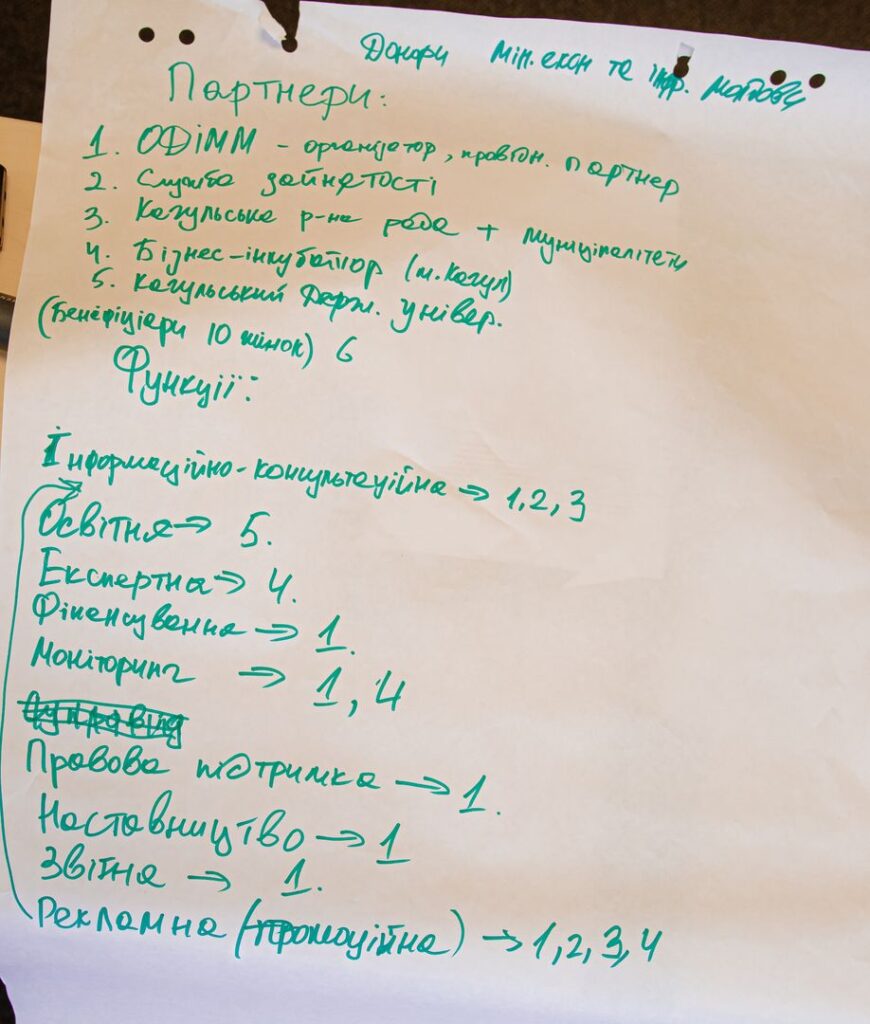 Донори Мін. екон та інфр. Молдови
Партнери:
1. ОФІММ - організатор, провідн. партнер
2. Служба зайнятості
3. Кагульська р-на рада + муніципалітети
4. Бізнес-інкубатор (м. Кагул)
5. Кагульський Держ. універ.
(Бенефіціари 10 жінок) 6
Функції:
Інформаційно-консультаційна → 1, 2, 3
Освітня → 5.
Експертна → 4.
Фінансування → 1.
Моніторинг → 1, 4
Супровід
Правова підтримка → 1.
Наставництво → 1
Звітна → 1.
Рекламна (промоційна) → 1, 2, 3, 4